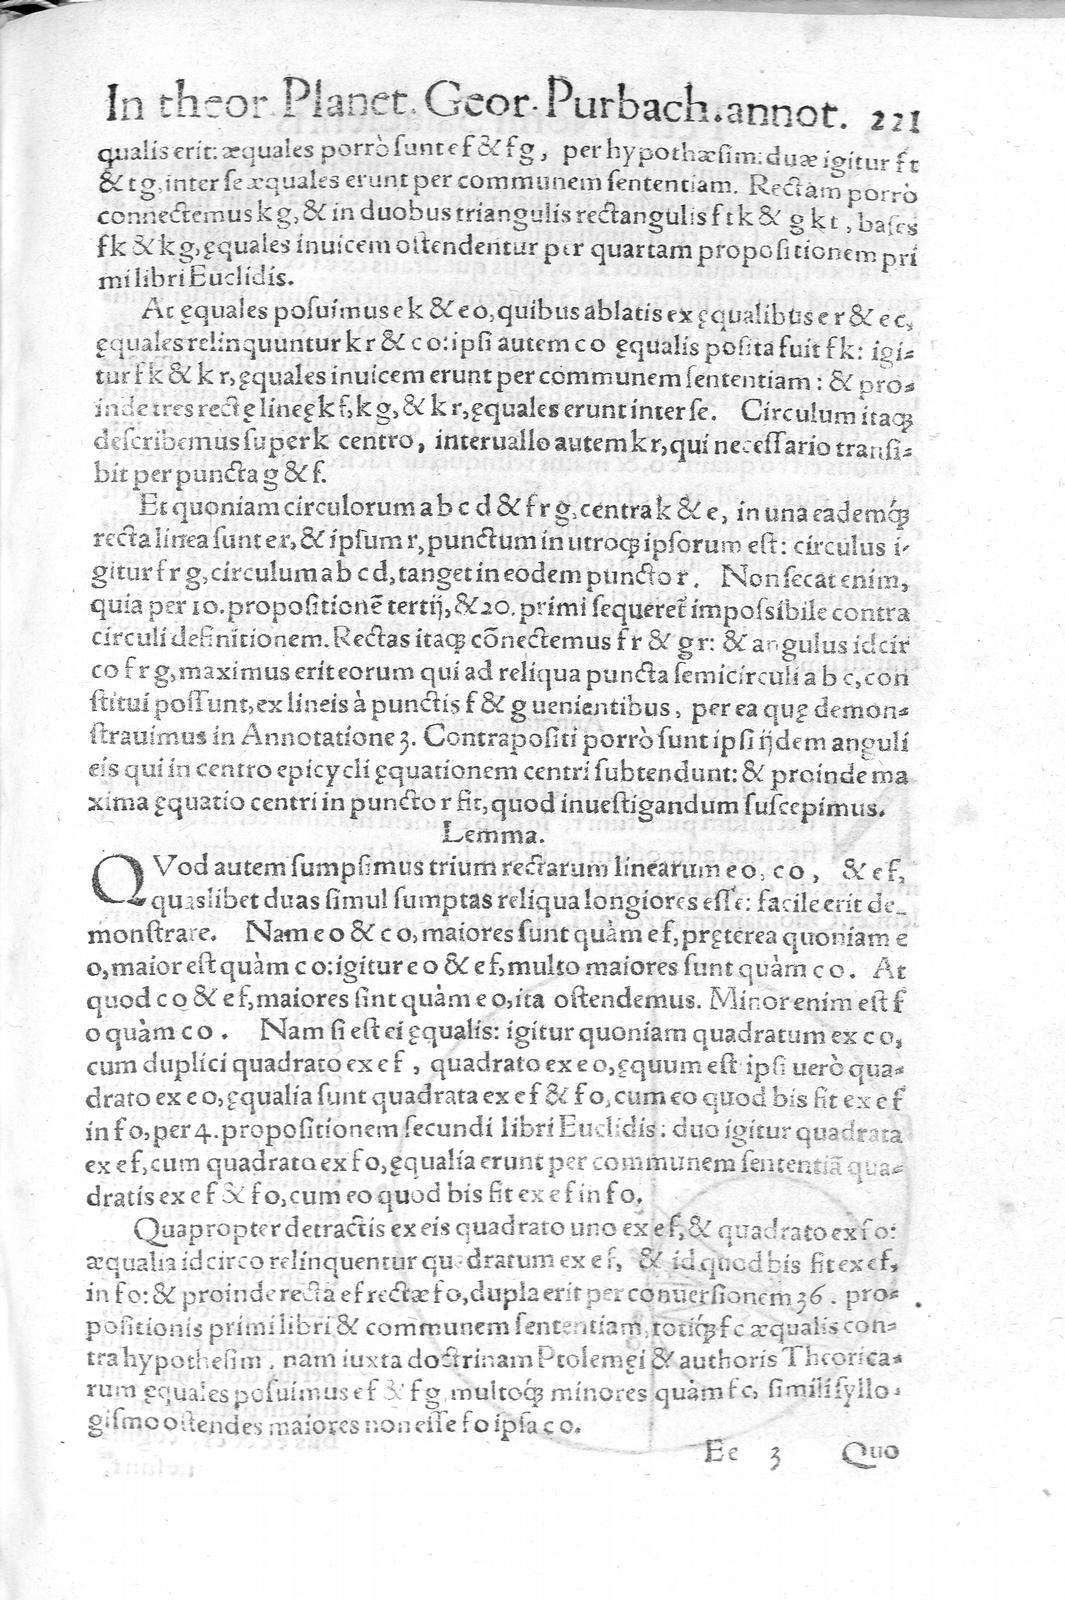 In theor. Planet. Geor. Purbach. annot. 221
qualis erit: æquales porrò sunt e f & f g, per hypothæsim: duæ igitur f t
& t g, inter se æquales erunt per communem sententiam. Rectam porrò
connectemus k g, & in duobus triangulis rectangulis f t k & g k t, bases
f k & k g, ęquales inuicem ostendentur per quartam propositionem pri
mi libri Euclidis.
At ęquales posuimus e k & e o, quibus ablatis ex ęqualibus e r & e c,
ęquales relinquuntur k r & c o: ipsi autem c o ęqualis posita fuit f k: igi-
tur f k & k r, ęquales inuicem erunt per communem sententiam: & pro-
inde tres rectę lineę k f, k g, & k r, ęquales erunt inter se. Circulum itaq́;
describemus super k centro, interuallo autem k r, qui necessario transi-
bit per puncta g & f.
Et quoniam circulorum a b c d & f r g, centra k & e, in una eademq́;
recta linea sunt e r, & ipsum r, punctum in utroq; ipsorum est: circulus i-
gitur f r g, circulum a b c d, tanget in eodem puncto r. Non secat enim,
quia per 10. propositionē tertij, & 20. primi sequeret̃ impossibile contra
circuli definitionem. Rectas itaq; cōnectemus f r & g r: & angulus idcir
co f r g, maximus erit eorum qui ad reliqua puncta semicirculi a b c, con
stitui possunt, ex lineis à punctis f & g uenientibus, per ea quę demon-
strauimus in Annotatione 3. Contrapositi porrò sunt ipsi ijdem anguli
eis qui in centro epicycli ęquationem centri subtendunt: & proinde ma
xima ęquatio centri in puncto r fit, quod inuestigandum suscepimus.
Lemma.
QVod autem sumpsimus trium rectarum linearum e o, c o, & e f,
quaslibet duas simul sumptas reliqua longiores esse: facile erit de-
monstrare. Nam e o & c o, maiores sunt quàm e f, pręterea quoniam e
o, maior est quàm c o: igitur e o & e f, multo maiores sunt quàm c o. At
quod c o & e f, maiores sint quàm e o, ita ostendemus. Minor enim est f
o quàm c o. Nam si est ei ęqualis: igitur quoniam quadratum ex c o,
cum duplici quadrato ex e f, quadrato ex e o, ęquum est ipsi uerò qua-
drato ex e o, ęqualia sunt quadrata ex e f & f o, cum eo quod bis fit ex e f
in f o, per 4. propositionem secundi libri Euclidis: duo igitur quadrata
ex e f, cum quadrato ex f o, ęqualia erunt per communem sententiā qua-
dratis ex e f & f o, cum eo quod bis fit ex e f in f o.
Quapropter detractis ex eis quadrato uno ex e f, & quadrato ex f o:
æqualia idcirco relinquentur quadratum ex e f, & id quod bis fit ex e f,
in f o: & proinde recta e f rectæ f o, dupla erit per conuersionem 36. pro-
positionis primi libri & communem sententiam, totiq́; f c æqualis con-
tra hypothesim, nam iuxta doctrinam Ptolemęi & authoris Theorica-
rum ęquales posuimus e f & f g, multoq́; minores quàm f c, simili syllo-
gismo ostendes maiores non esse f o ipsa c o.
Ee 3 Quo